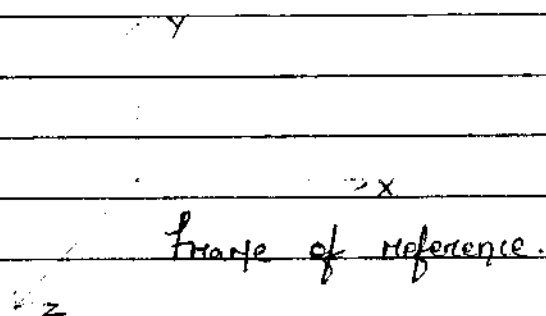 Y
X
Frame of reference.
Z